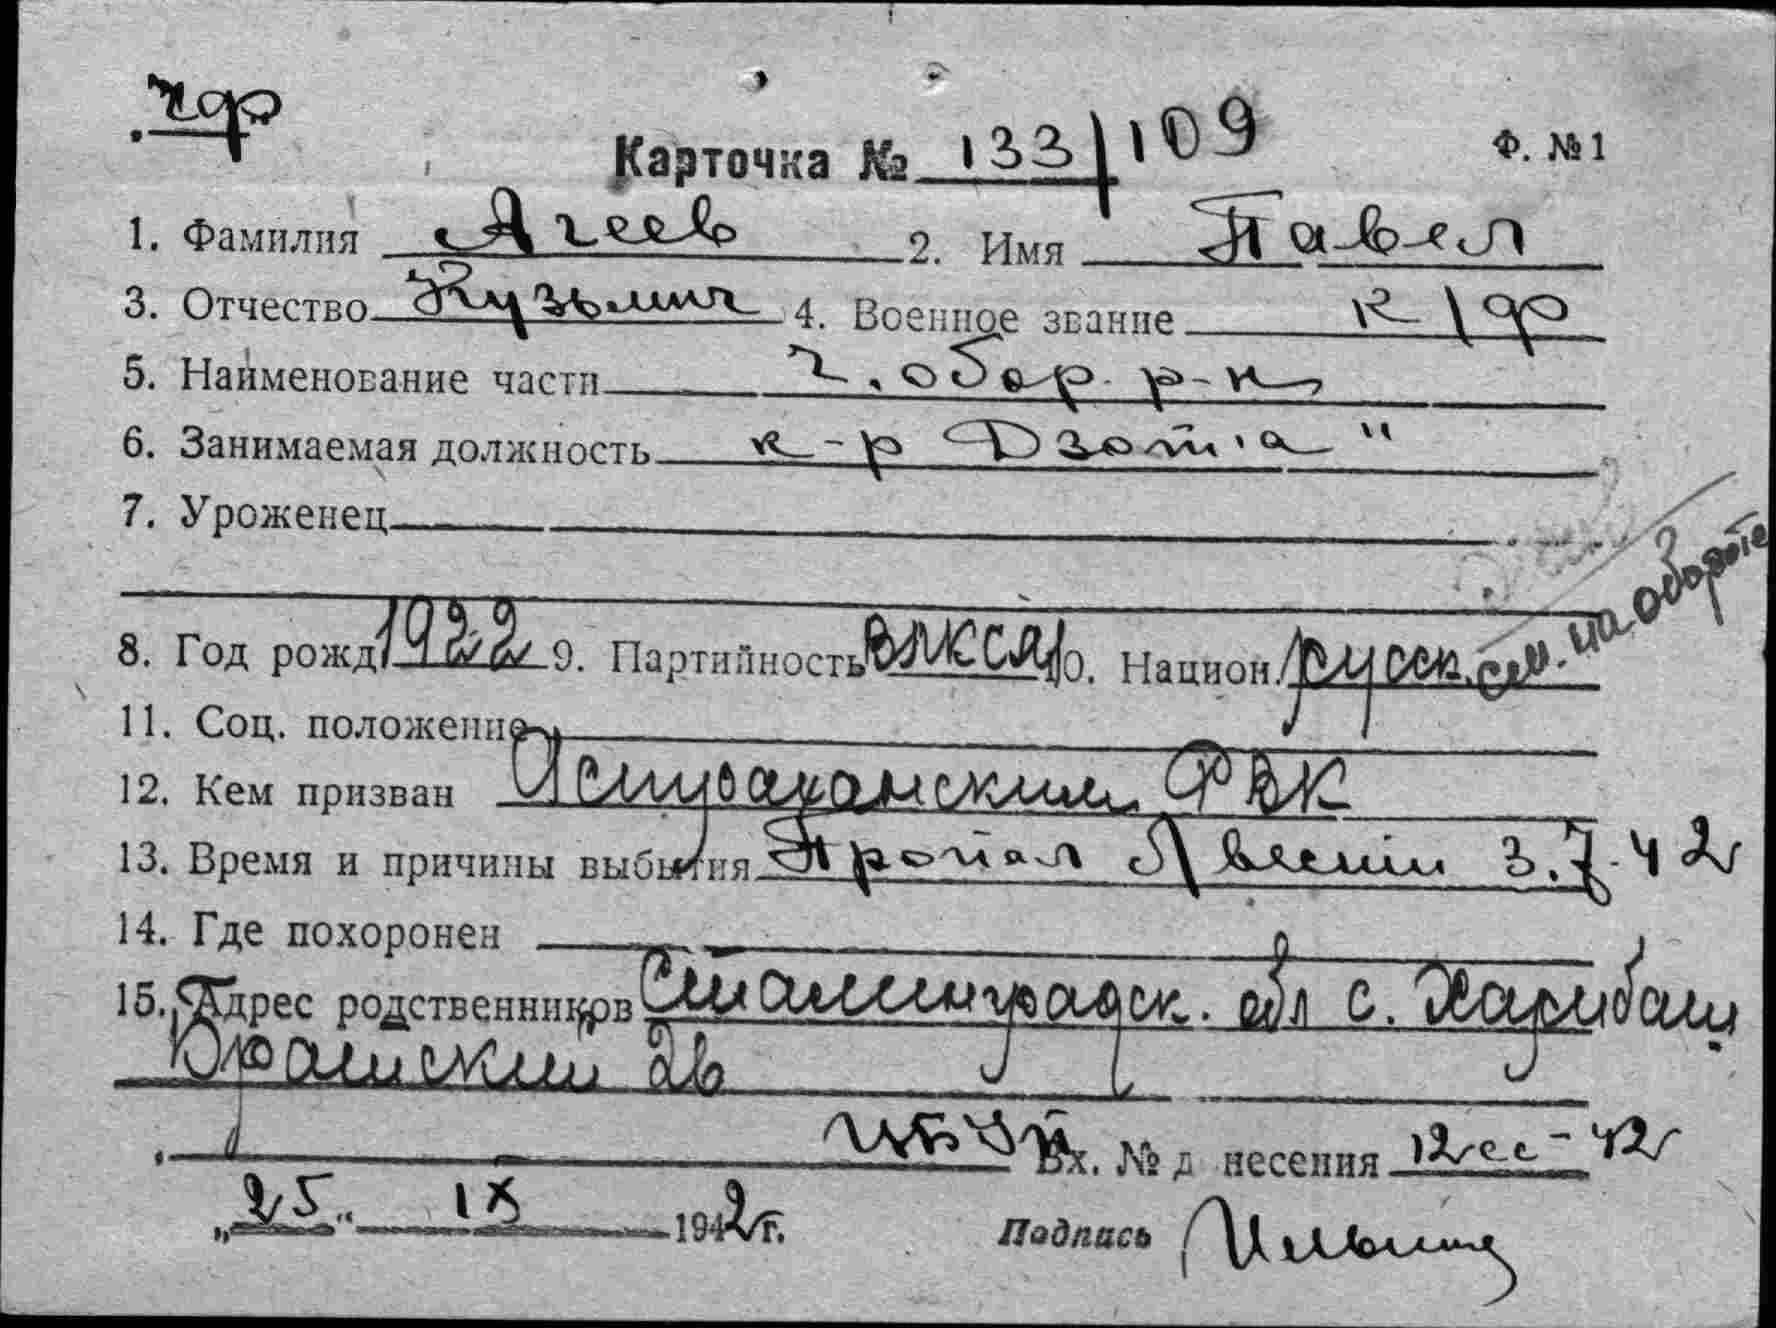 кф
Карточка № 133/109 Ф. №1
1. Фамилия Агеев 2. Имя Павел
3. Отчество Кузьмич 4. Военное звание к/ф
5. Наименование части ч. обор. р-н
6. Занимаемая должность к-р Дзот'а"
7. Уроженец
см. на обороте
8. Год рожд 1922 9. Партийность ВЛКСМ 10. Национ. русск.
11. Соц. положение
12. Кем призван Астраханским РВК
13. Время и причины выбытия Пропал б/вести 3.7.42
14. Где похоронен
15. Адрес родственников Сталинградск. обл с. Харибали
26
Вх. № д несения 12сс-42
„25" IX 1942г.
Подпись